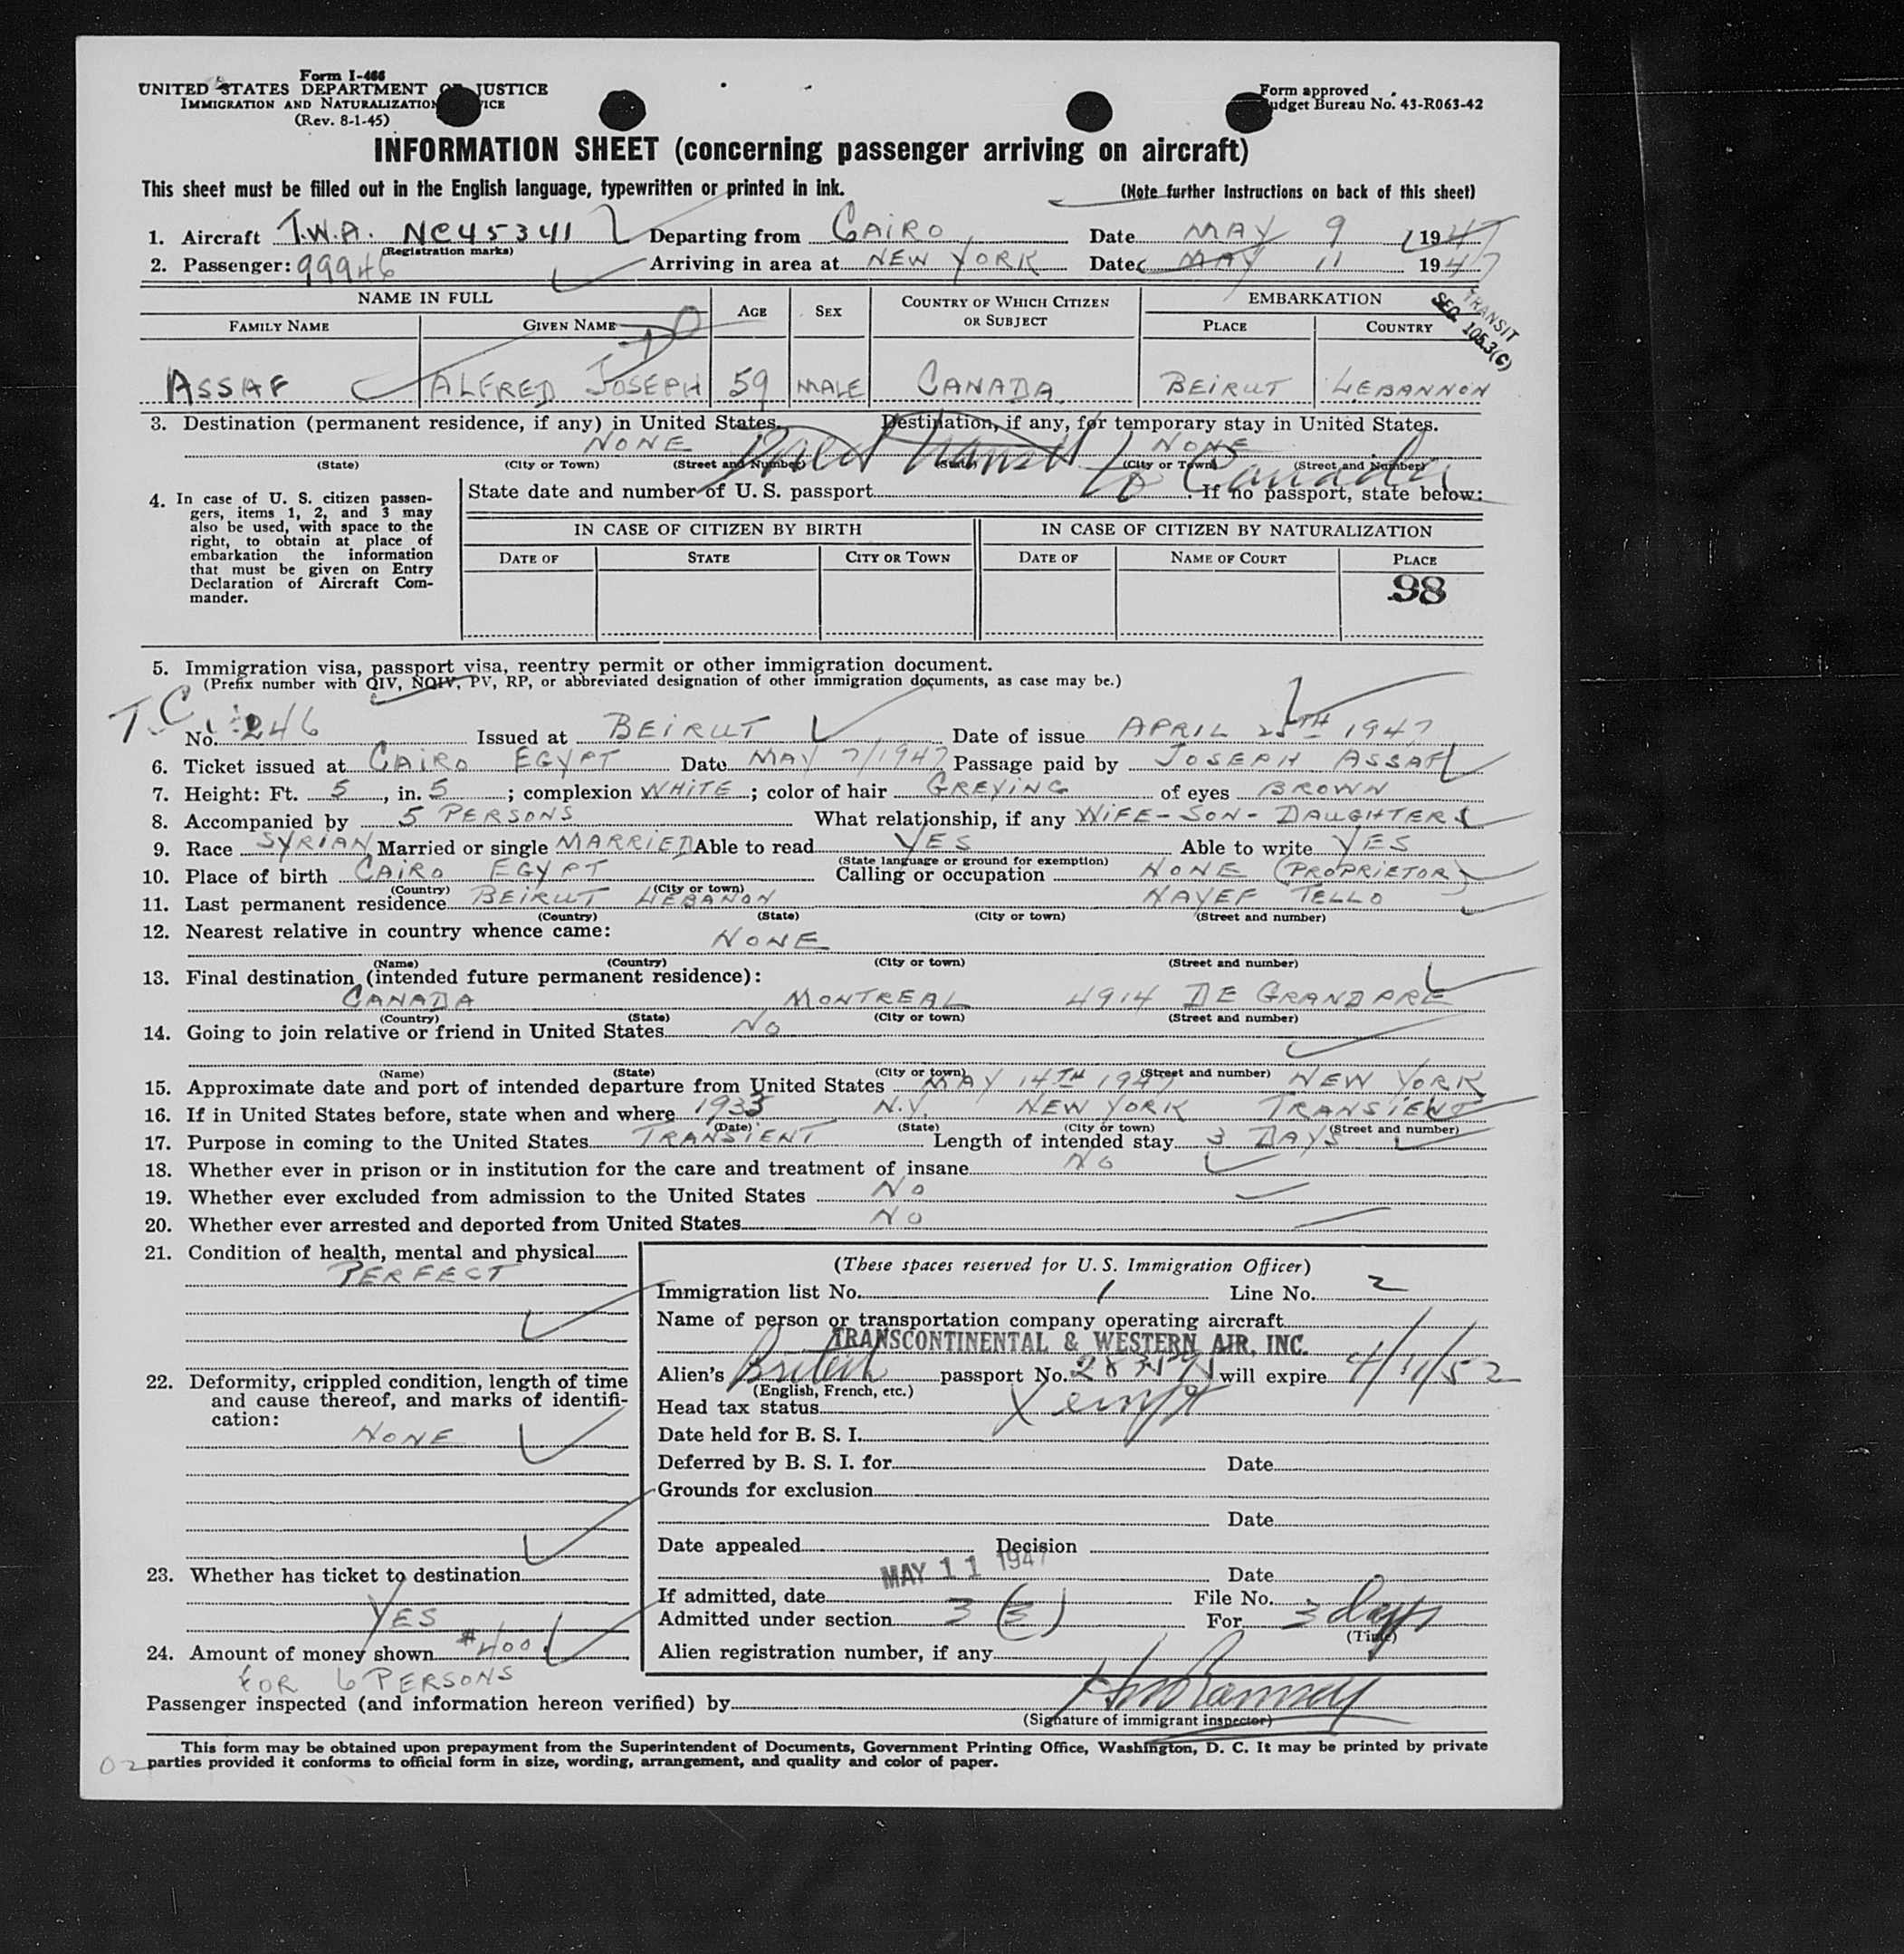 Form I-466
UNITED STATES DEPARTMENT OF JUSTICE
IMMIGRATION AND NATURALIZATION SERVICE
(Rev. 8-1-45)
Form approved
Budget Bureau No. 43-R063-42
INFORMATION SHEET (concerning passenger arriving on aircraft)
This sheet must be filled out in the English language, typewritten or printed in ink. (Note further instructions on back of this sheet)
1. Aircraft T.W.A. NC45341 Departing from CAIRO Date MAY 9 1947
(Registration marks)
2. Passenger: 99946 Arriving in area at NEW YORK Date MAY 11 1947
TRANSIT
SEC. 105.3(C)
NAME IN FULL AGE SEX COUNTRY OF WHICH CITIZEN OR SUBJECT EMBARKATION
FAMILY NAME GIVEN NAME PLACE COUNTRY
ASSAF ALFRED JOSEPH 59 MALE CANADA BEIRUT LEBANNON
3. Destination (permanent residence, if any) in United States. Destination, if any, for temporary stay in United States.
NONE NONE
(State) (City or Town) (Street and Number) (State) (City or Town) (Street and Number)
Transit to Canada
4. In case of U. S. citizen passengers, items 1, 2, and 3 may also be used, with space to the right, to obtain at place of embarkation the information that must be given on Entry Declaration of Aircraft Commander.
State date and number of U. S. passport. If no passport, state below:
IN CASE OF CITIZEN BY BIRTH IN CASE OF CITIZEN BY NATURALIZATION
DATE OF STATE CITY OR TOWN DATE OF NAME OF COURT PLACE
98
5. Immigration visa, passport visa, reentry permit or other immigration document.
(Prefix number with QIV, NQIV, PV, RP, or abbreviated designation of other immigration documents, as case may be.)
T.C. No. 246 Issued at BEIRUT Date of issue APRIL 25TH 1947
6. Ticket issued at CAIRO EGYPT Date MAY 7/1947 Passage paid by JOSEPH ASSAF
7. Height: Ft. 5, in. 5; complexion WHITE; color of hair GREYING of eyes BROWN
8. Accompanied by 5 PERSONS What relationship, if any WIFE-SON-DAUGHTERS
9. Race SYRIAN Married or single MARRIED Able to read YES Able to write YES
(State language or ground for exemption)
10. Place of birth CAIRO EGYPT Calling or occupation NONE (PROPRIETOR)
(Country) (City or town)
11. Last permanent residence BEIRUT LEBANON NAYEF TELLO
(Country) (State) (City or town) (Street and number)
12. Nearest relative in country whence came:
NONE
(Name) (Country) (City or town) (Street and number)
13. Final destination (intended future permanent residence):
CANADA MONTREAL 4914 DE GRANDPRE
(Country) (State) (City or town) (Street and number)
14. Going to join relative or friend in United States NO
(Name) (State) (City or town) (Street and number)
15. Approximate date and port of intended departure from United States MAY 14TH 1947 NEW YORK
16. If in United States before, state when and where 1933 N.Y. NEW YORK TRANSIENT
(Date) (State) (City or town) (Street and number)
17. Purpose in coming to the United States TRANSIENT Length of intended stay 3 DAYS
18. Whether ever in prison or in institution for the care and treatment of insane NO
19. Whether ever excluded from admission to the United States NO
20. Whether ever arrested and deported from United States NO
21. Condition of health, mental and physical
PERFECT
22. Deformity, crippled condition, length of time and cause thereof, and marks of identification:
NONE
23. Whether has ticket to destination
YES
24. Amount of money shown $400
FOR 6 PERSONS
(These spaces reserved for U. S. Immigration Officer)
Immigration list No. 1 Line No. 2
Name of person or transportation company operating aircraft
TRANSCONTINENTAL & WESTERN AIR, INC.
Alien's British passport No. will expire 4/11/52
(English, French, etc.)
Head tax status Xempt
Date held for B. S. I.
Deferred by B. S. I. for Date
Grounds for exclusion
Date
Date appealed Decision
Date
If admitted, date MAY 11 1947 File No.
Admitted under section 3 (3) For 3 days
(Time)
Alien registration number, if any
Passenger inspected (and information hereon verified) by
(Signature of immigrant inspector)
This form may be obtained upon prepayment from the Superintendent of Documents, Government Printing Office, Washington, D. C. It may be printed by private
02 parties provided it conforms to official form in size, wording, arrangement, and quality and color of paper.